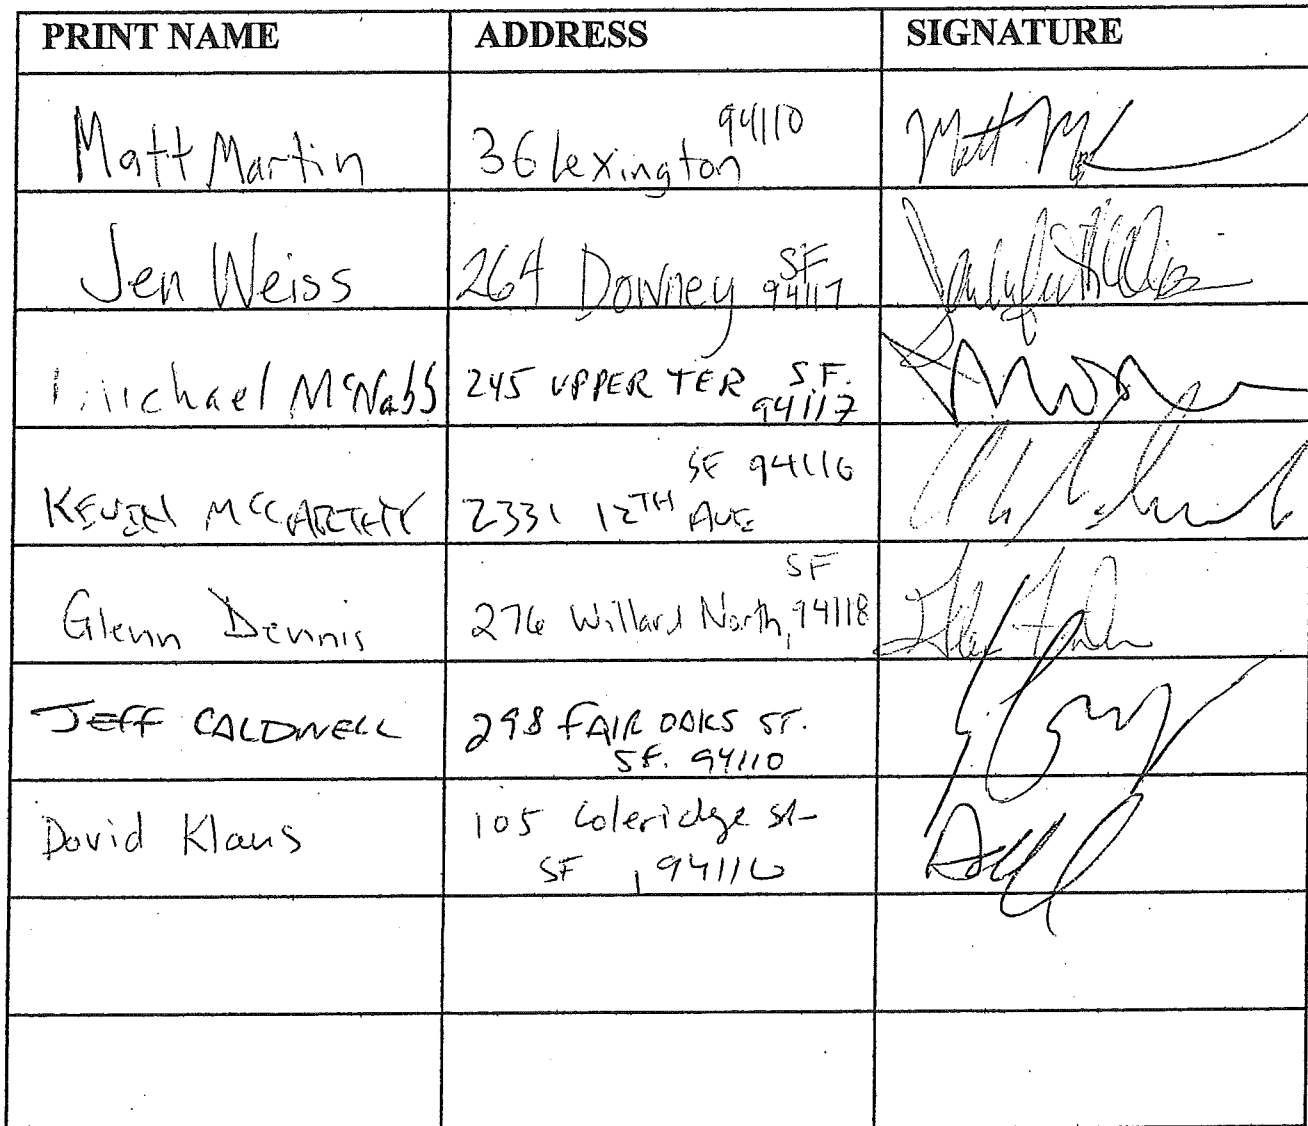 PRINT NAME ADDRESS SIGNATURE
Matt Martin 36 Lexington 94110 Matt
Jen Weiss 264 Downey SF
94117
Michael McNabb 245 UPPER TER S.F.
94117
SF 94116
KEVIN MCCARTHY 2331 12TH AVE
SF
Glenn Dennis 276 Willard North, 94118
JEFF CALDWELL 298 FAIR OAKS ST.
SF. 94110
David Klaus 105 Coleridge St
SF, 94110